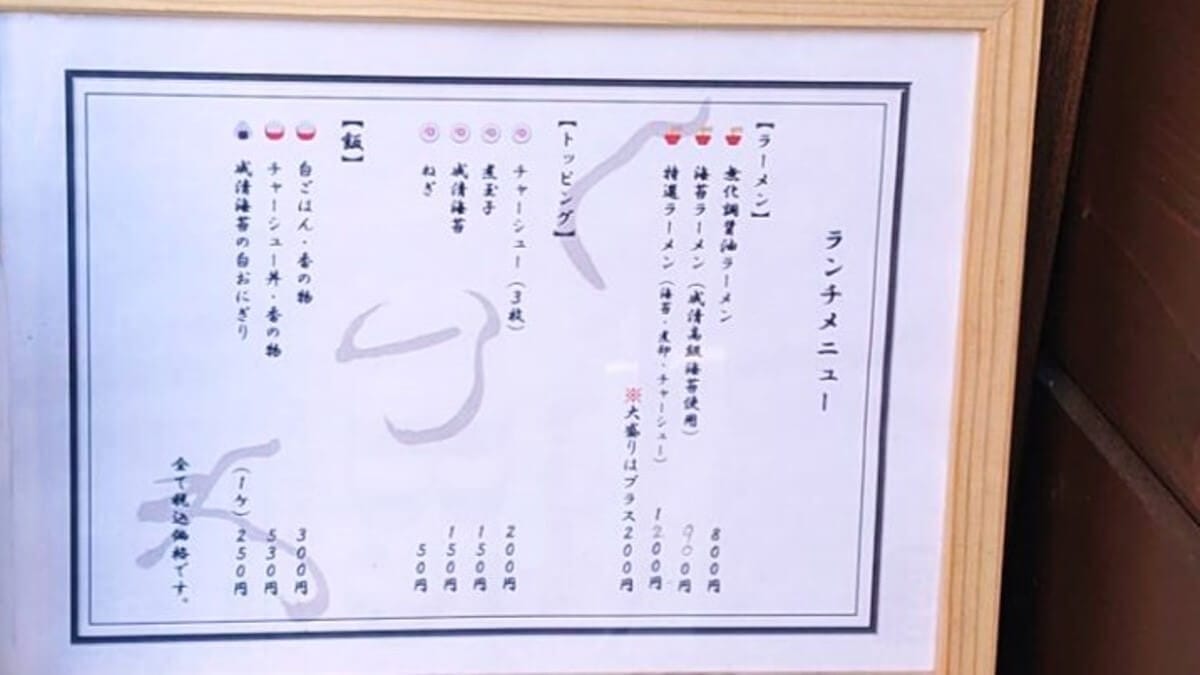 ランチメニュー
【ラーメン】
無化調醤油ラーメン 800円
海苔ラーメン(成清高級海苔使用) 900円
特選ラーメン(海苔・煮卵・チャーシュー) 1200円
※大盛りはプラス200円
【トッピング】
チャーシュー(3枚) 200円
煮玉子 150円
成清海苔 150円
ねぎ 50円
【飯】
白ごはん・香の物 300円
チャーシュー丼・香の物 530円
成清海苔の白おにぎり (1ケ)250円
全て税込価格です。